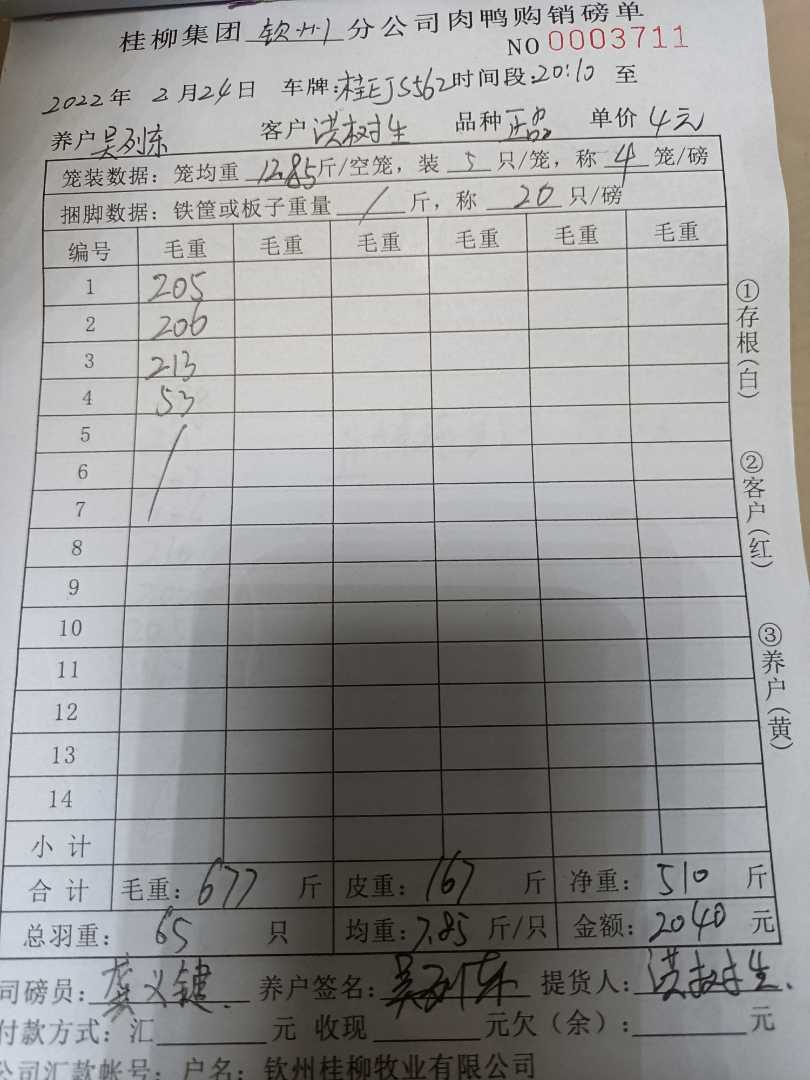 桂柳集团 钦州 分公司肉鸭购销磅单
NO 0003711
2022年 2月24日 车牌:桂EJS562时间段:20:10 至
养户 吴列东 客户 洪树生 品种 正品 单价 4元
笼装数据: 笼均重 12.85斤/空笼, 装 5 只/笼, 称 4 笼/磅
捆脚数据: 铁筐或板子重量 / 斤, 称 20 只/磅
编号 毛重 毛重 毛重 毛重 毛重 毛重
1 205
2 206
3 213
4 53
5 /
6
7
8
9
10
11
12
13
14
小 计
合 计 毛重: 677 斤 皮重: 167 斤 净重: 510 斤
总羽重: 65 只 均重: 7.85 斤/只 金额: 2040 元
司磅员: 义键 养户签名: 吴列东 提货人: 洪树生
付款方式: 汇 元 收现 元欠(余): 元
公司汇款帐号: 户名: 钦州桂柳牧业有限公司
①存根(白)
②客户(红)
③养户(黄)